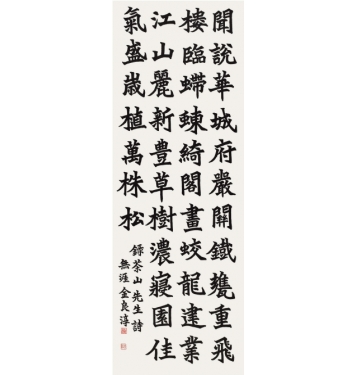 聞說華城府嚴關鐵甕重飛
樓臨螮蝀綺閣畫蛟龍建業
江山麗新豊草樹濃寢園佳
氣盛歲植萬株松
錄茶山先生詩
無涯金良淳